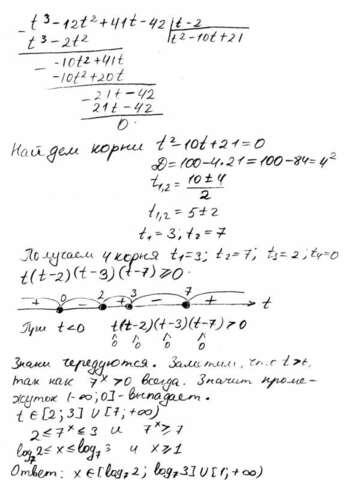 t³-12t²+41t-42 | t-2
t³-2t² | t²-10t+21
-10t²+41t
-10t²+20t
21t-42
21t-42
0
Найдем корни t²-10t+21=0
D=100-4·21=100-84=4²
t₁,₂= (10±4)/2
t₁,₂=5±2
t₁=3; t₂=7
Получаем 4 корня t₁=3; t₂=7; t₃=2; t₄=0
t(t-2)(t-3)(t-7)≥0
+ 0 - 2 + 3 - 7 + t
При t<0 t(t-2)(t-3)(t-7)>0
^ ^ ^ ^
0 0 0 0
Знаки чередуются. Заметим, что t>
так как 7ˣ>0 всегда. Значит проме-
жуток (-∞;0] - выпадает.
t∈[2;3]∪[7;+∞)
2≤7ˣ≤3 и 7ˣ≥7
log₇2≤x≤log₇3 и x≥1
Ответ: x∈[log₇2; log₇3]∪[1;+∞)